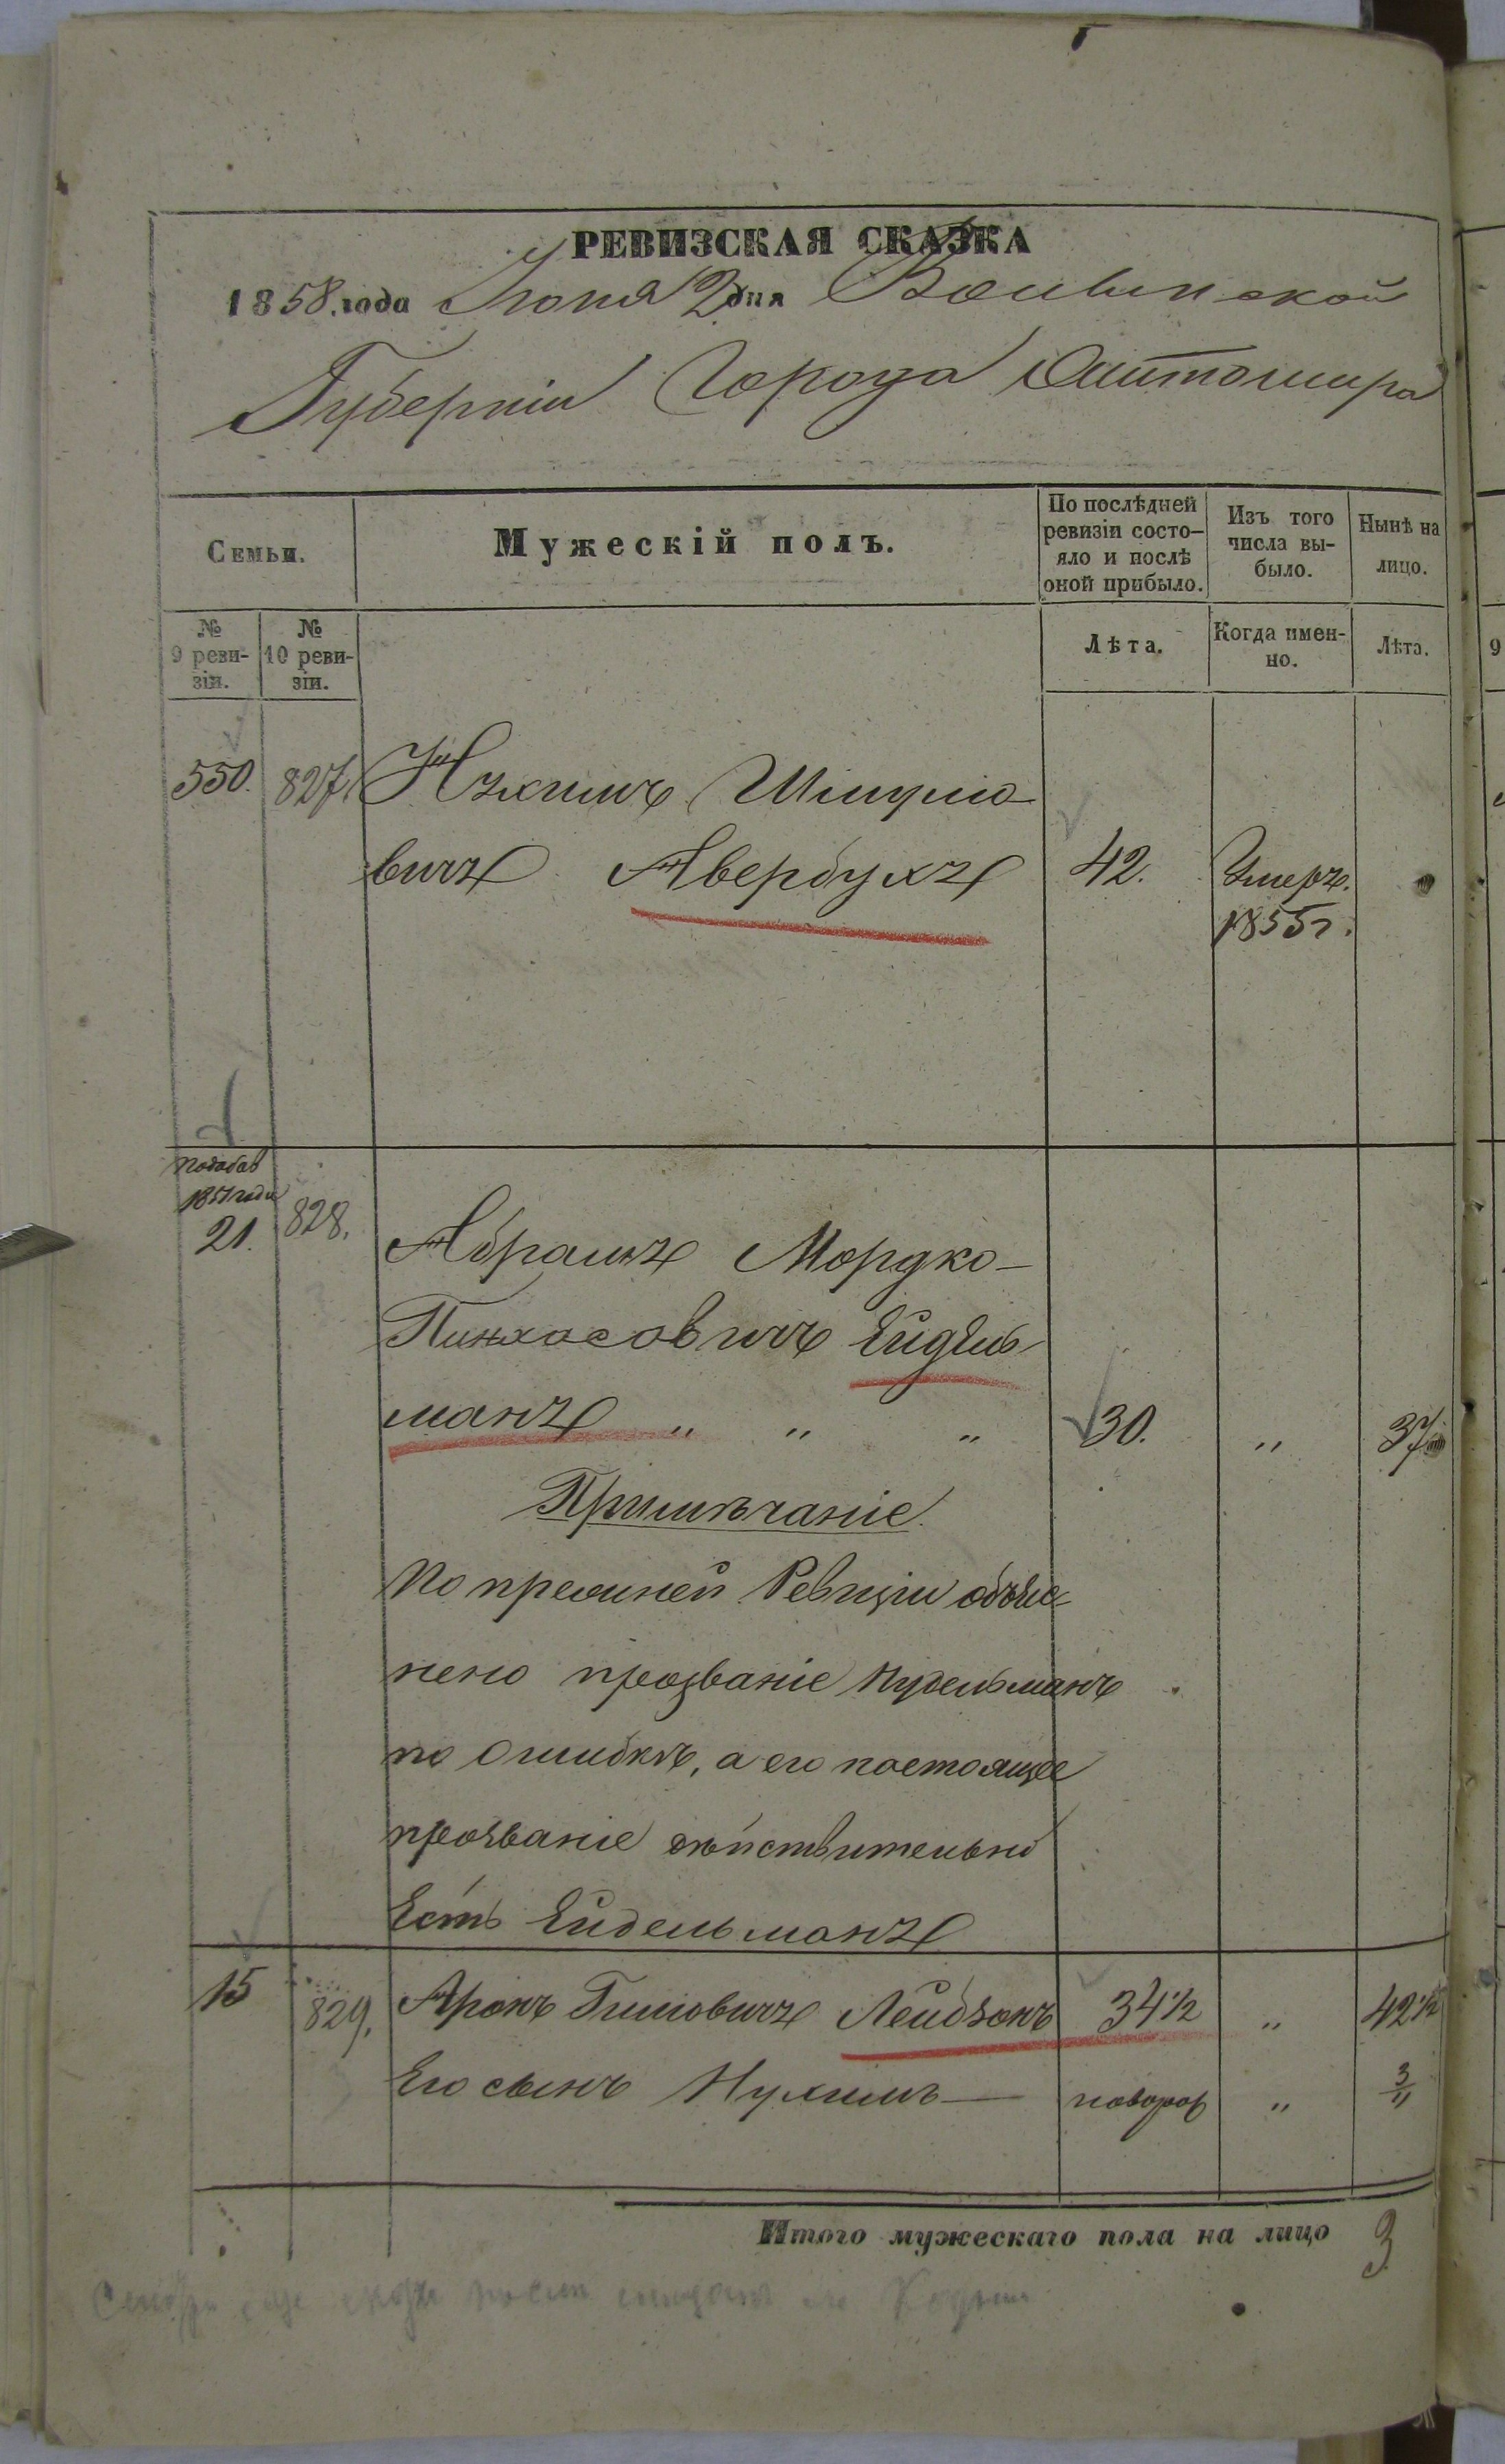 РЕВИЗСКАЯ СКАЗКА
1858. года Июня 2 дня Волынской
Губерніи Города Житомира
Семьи.
Мужескій полъ.
По послѣдней ревизіи состо-
яло и послѣ оной прибыло.
Изъ того числа вы-
было.
Нынѣ на лицо.
№ 9 реви-
зіи.
№ 10 реви-
зіи.
Лѣта.
Когда имен-
но.
Лѣта.
550. 827. Нухимъ Шмулио-
вичъ Авербухъ 42. Умеръ.
1855г.
1851 года
21. 828.
Абрамъ Мордко-
Пинхасовичъ Ейдель-
манъ „ „ „ 30. „ 37
Примѣчаніе.
По прежней Ревизіи объяс-
нено прозваніе Нудельманъ
по ошибкѣ, а его настоящее
прозваніе дѣйствительно
Есть Ейдельманъ
15 829. Аронъ Гимовичъ Лейбзонъ 34½ „ 42½
Его сынъ Нухимъ — новорож „ 3/„
Итого мужескаго пола на лицо 3